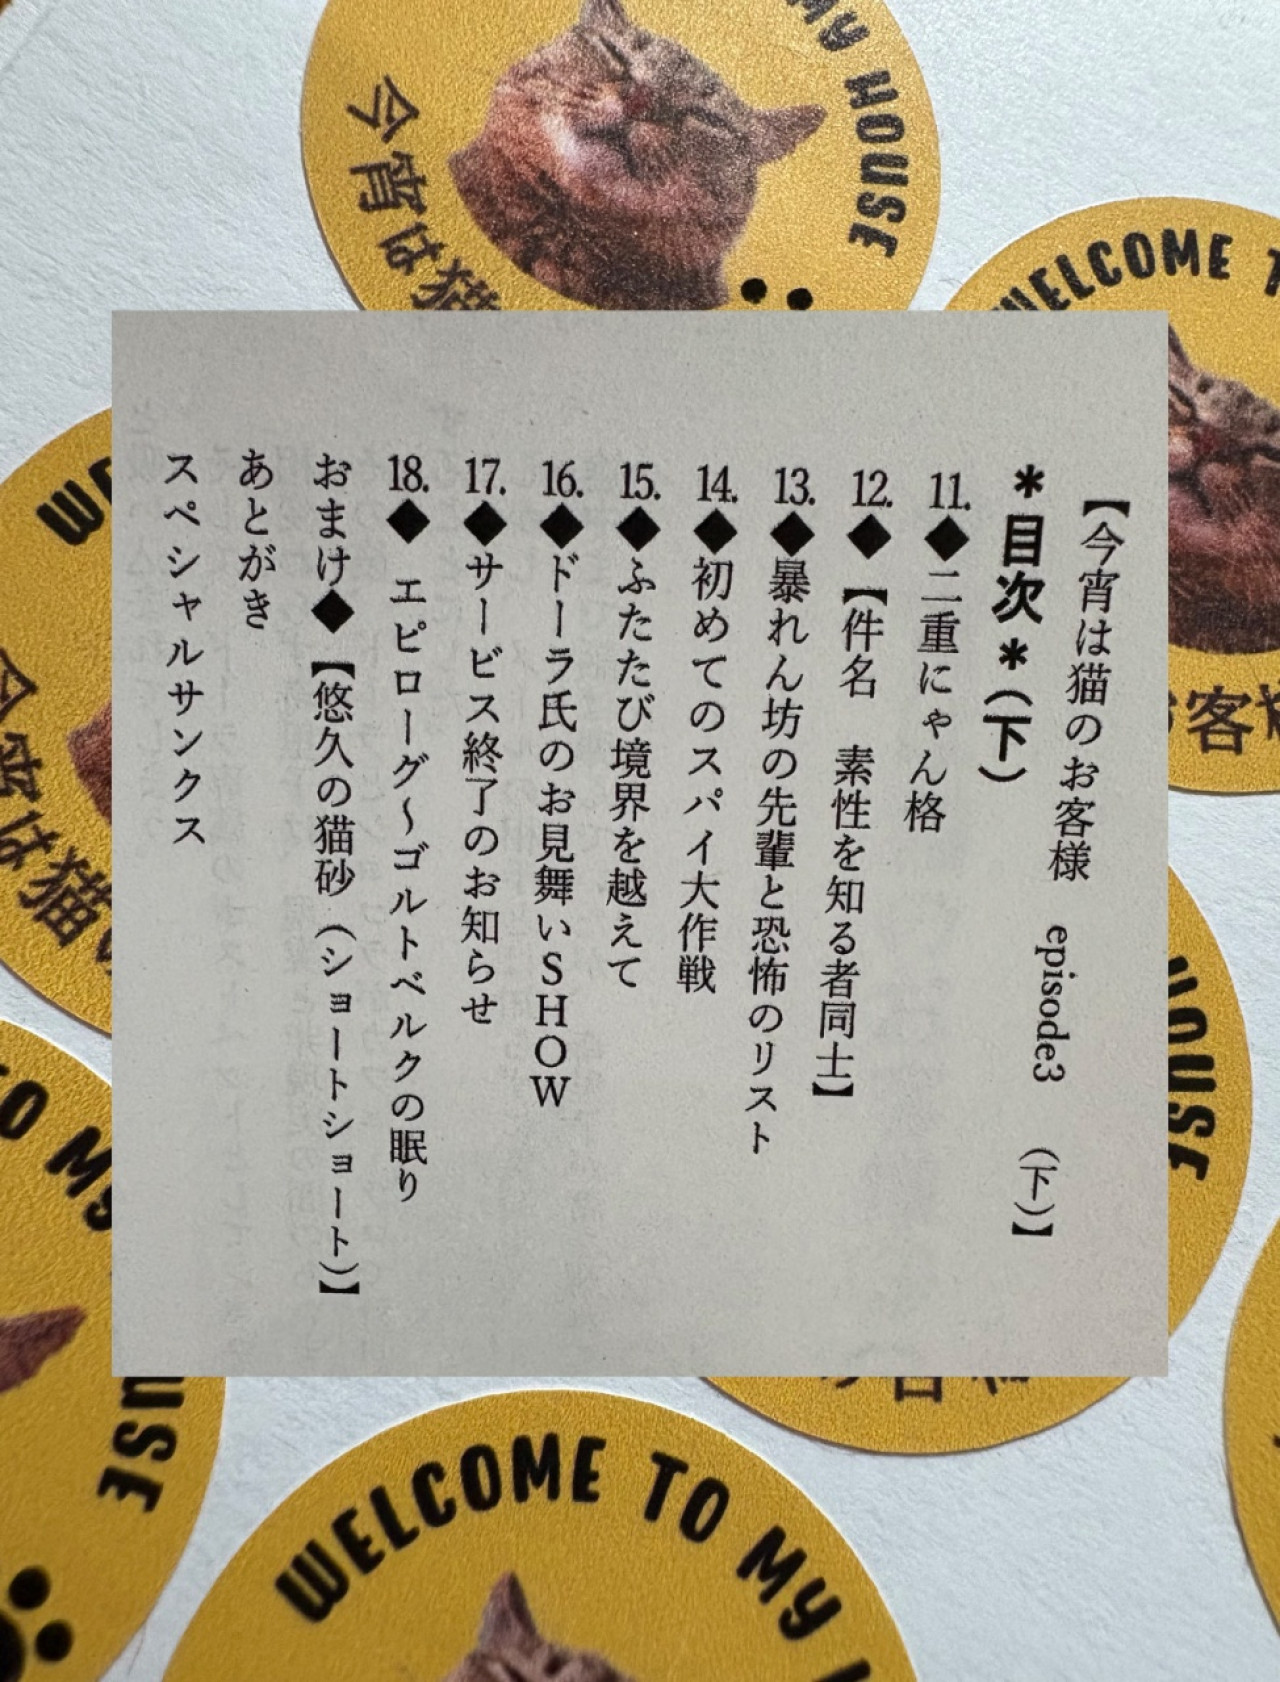 MY HOUSE
今宵は猫
WELCOME
お客様
【今宵は猫のお客様　episode3　（下）】
＊目次＊（下）
11.◆二重にゃん格
12.◆【件名　素性を知る者同士】
13.◆暴れん坊の先輩と恐怖のリスト
14.◆初めてのスパイ大作戦
15.◆ふたたび境界を越えて
16.◆ドーラ氏のお見舞いＳＨＯＷ
17.◆サービス終了のお知らせ
18.◆　エピローグ～ゴルトベルクの眠り
おまけ◆【悠久の猫砂（ショートショート）】
あとがき
スペシャルサンクス
今宵は猫
HOUSE
TO MY
WELCOME TO MY